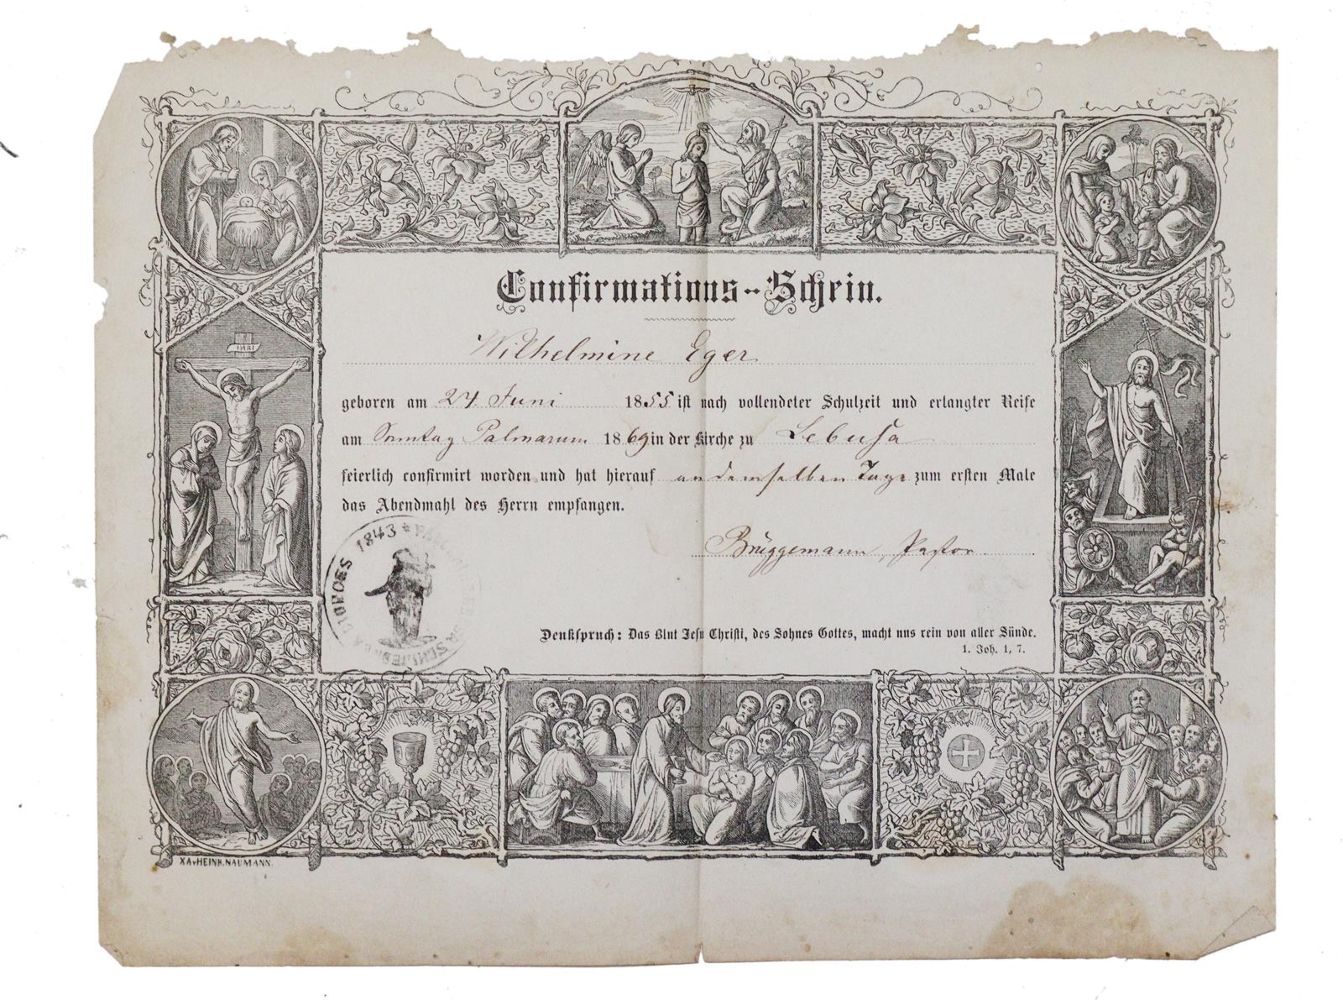 INRI
Confirmations-Schein.
Wilhelmine Eger
geboren am 24 Juni 1855 ist nach vollendeter Schulzeit und erlangter Reife
am Sonntag Palmarum 1869 in der Kirche zu Lebusa
feierlich confirmirt worden und hat hierauf an demselben Tage zum ersten Male
das Abendmahl des Herrn empfangen.
Brüggemann, Pastor
1843
Denkspruch: Das Blut Jesu Christi, des Sohnes Gottes, macht uns rein von aller Sünde.
1. Joh. 1, 7.
XA.v HEINR. NAUMANN.